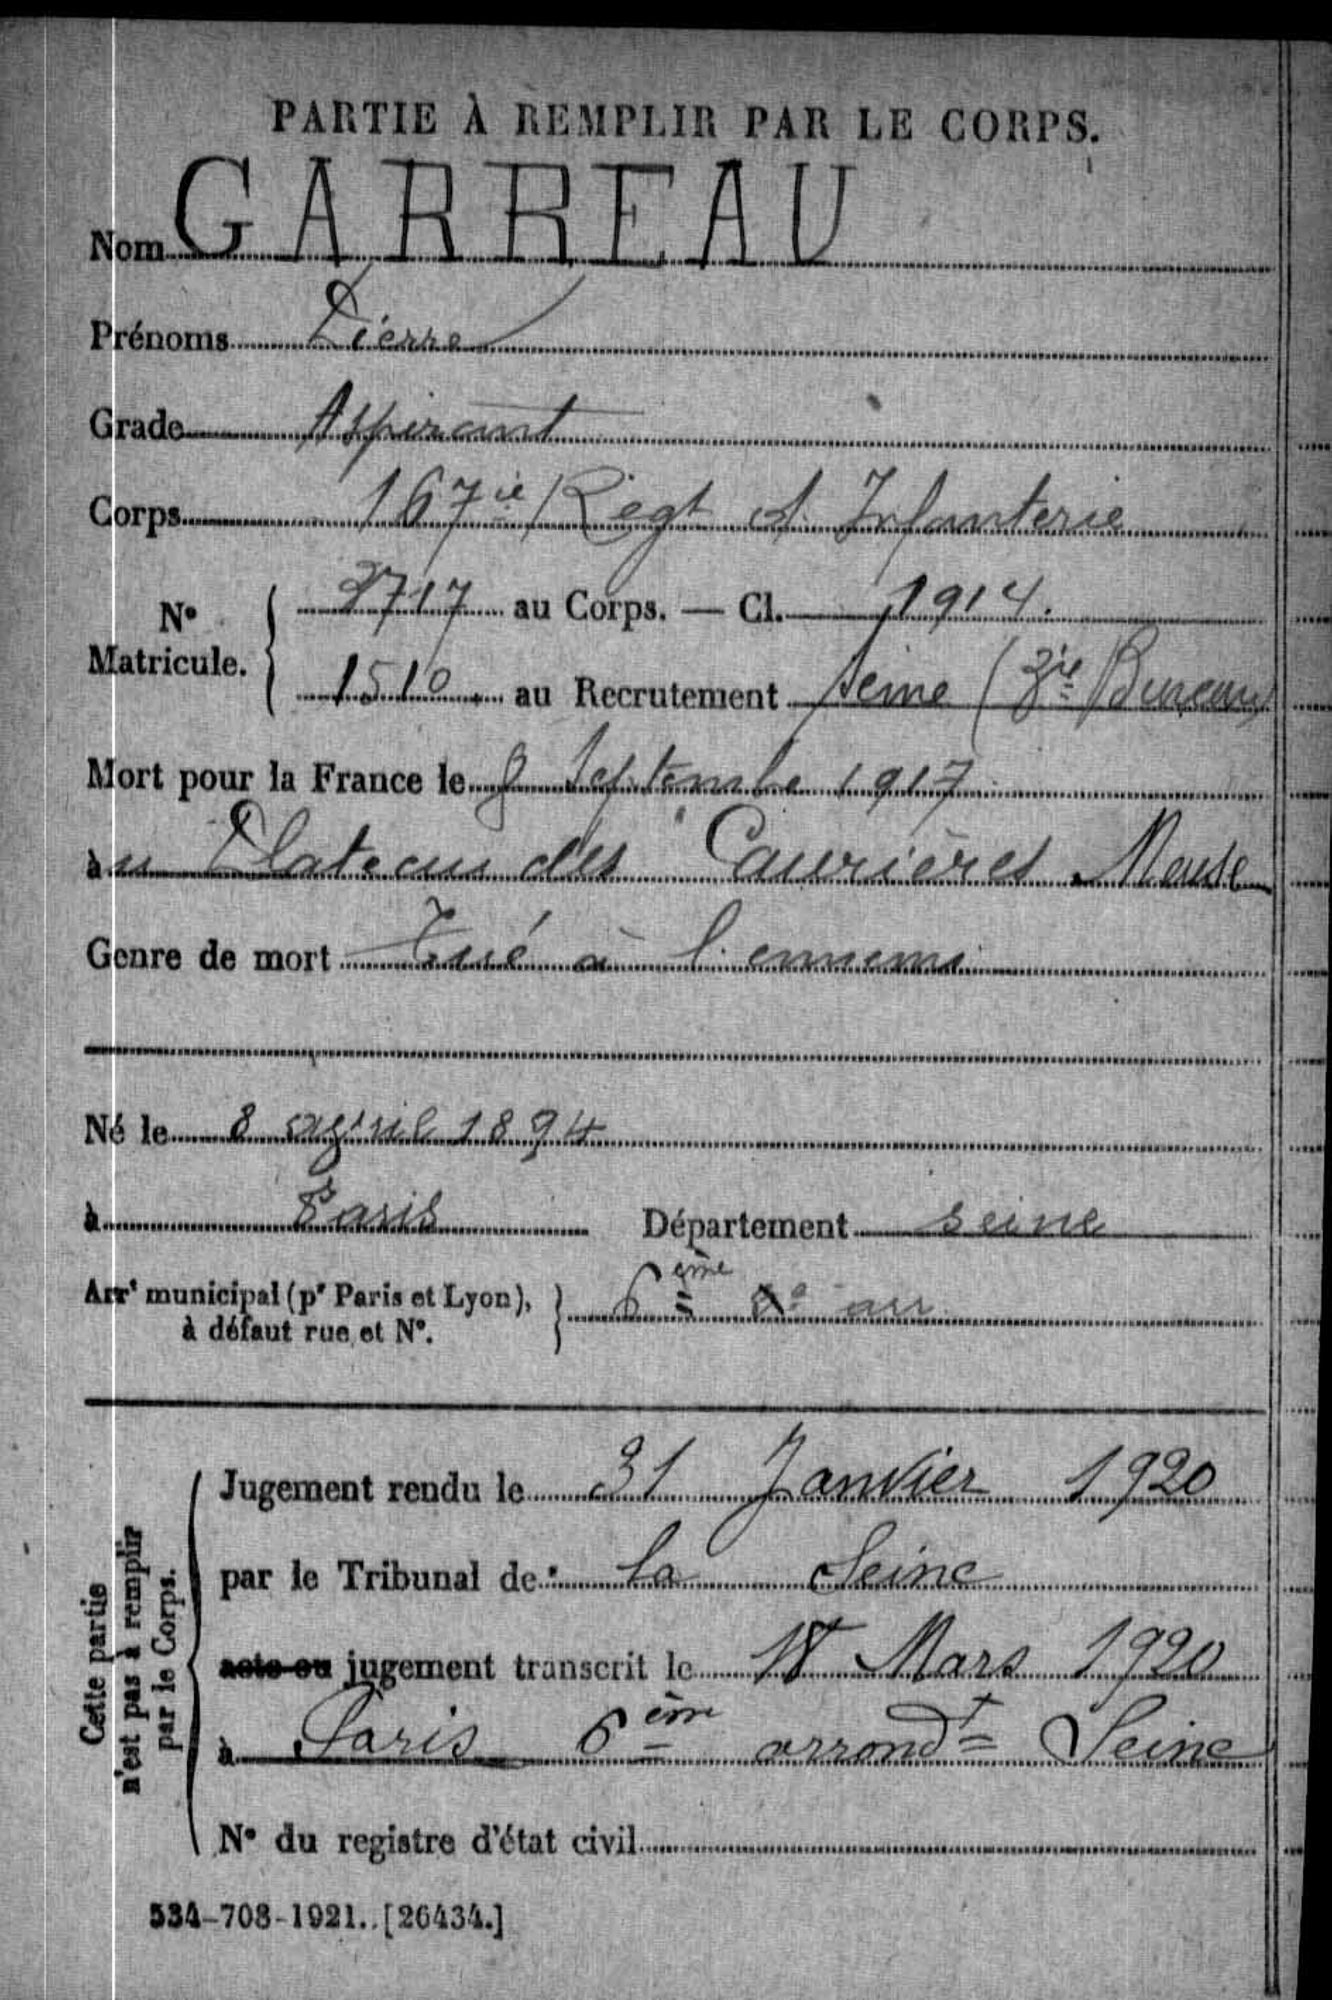 PARTIE À REMPLIR PAR LE CORPS.
Nom GARREAU
Prénoms Pierre
Grade Aspirant
Corps 167ie Régt d'Infanterie
N° Matricule. 2717 au Corps. — Cl. 1914.
1510 au Recrutement Seine (3ie Bureau)
Mort pour la France le 8 Septembre 1917
au Plateau des Caurières Meuse
Genre de mort Tué à l'ennemi
Né le 8 avril 1894
à Paris Département Seine
Arrt municipal (pr Paris et Lyon), à défaut rue et N°. 6ème arr
Cette partie n'est pas à remplir par le Corps.
Jugement rendu le 31 Janvier 1920
par le Tribunal de la Seine
acte ou jugement transcrit le 18 Mars 1920
à Paris 6ème arrondt Seine
N° du registre d'état civil
534-708-1921. [26434.]